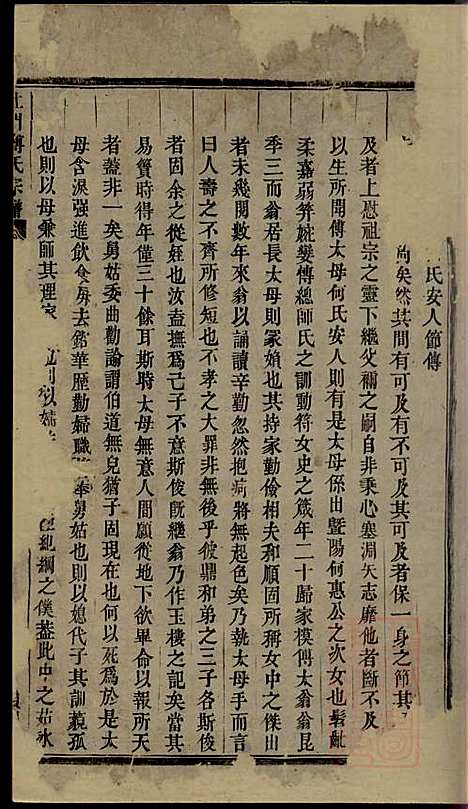 氏安人節傳
矣然其間有可及有不可及其可及者保一身之節其
及者上慰祖宗之靈下繼父禰之嗣自非秉心塞淵矢志靡他者斷不及
以生所聞傳太母何氏安人則有是太母係出暨陽何惠公之次女也髫齔
柔嘉弱笄婉孌傅總師氏之訓動符女史之箴年二十歸家模傳太翁翁昆
季三而翁居長太母則冢婦也其持家勤儉相夫和順固所稱女中之傑出
者未幾閱數年來翁以誦讀辛勤忽然抱痾將無起色矣乃執太母手而言
曰人壽之不齊所修短也不孝之大罪非無後乎彼鼎和弟之三子名斯俊
者固余之從姪也汝盍撫爲己子不意斯俊旣繼翁乃作玉樓之記矣當其
易簀時得年僅三十餘耳斯時太母無意人間願從地下欲畢命以報所天
者蓋非一矣舅姑委曲勸諭謂伯道無兒猶子固現在也何以死爲於是太
母含淚強進飲食屏去鉛華歷勤婦職奉舅姑也則以媳代子其訓藐孤
也則以母兼師其理家 綱之僕蓋此中之茹冰
上門傅氏宗譜